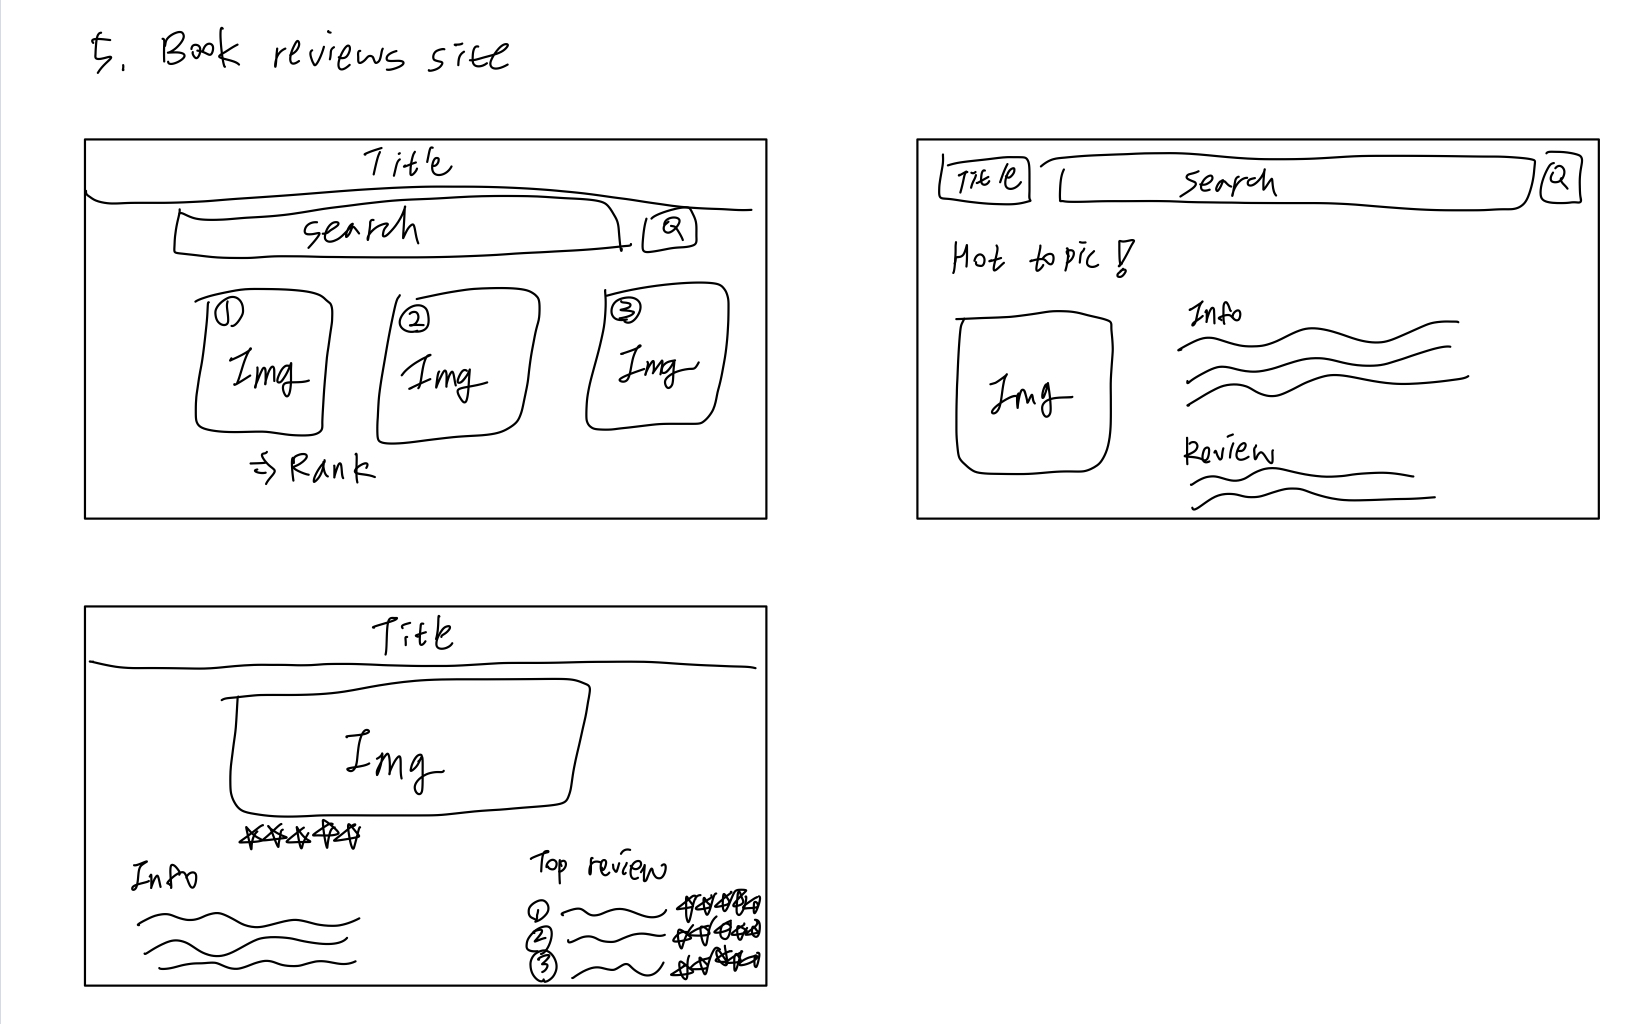 5. Book reviews site
Title
search
① ② ③
Img Img Img
⇒ Rank
Title search
Hot topic!
Img
Info
Review
Title
Img
Info
Top review
①
②
③